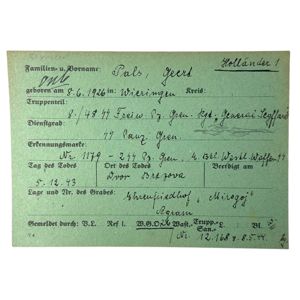 Holländer 1
Familien- u. Vorname: Pals, Geert
geboren am 8.6.1926 in: Wieringen Kreis:
Truppenteil: 8./48 ## Freiw. Pz. Gren. Rgt. "General Seyffard"
Dienstgrad: ## Panz. Gren.
Erkennungsmarke: Nr. 1179 - ## Pz. Gren.
Tag des Todes Ort des Todes Beerdigt am
5.12.43 Dvor Brezova
Lage und Nr. des Grabes: Ehrenfriedhof "Mirogoj"
Agram
Gemeldet durch: V.L. Ref I. W.G.O. Trupp. S.L. Bl.
San.-
Nr. 12.168 8.5.44